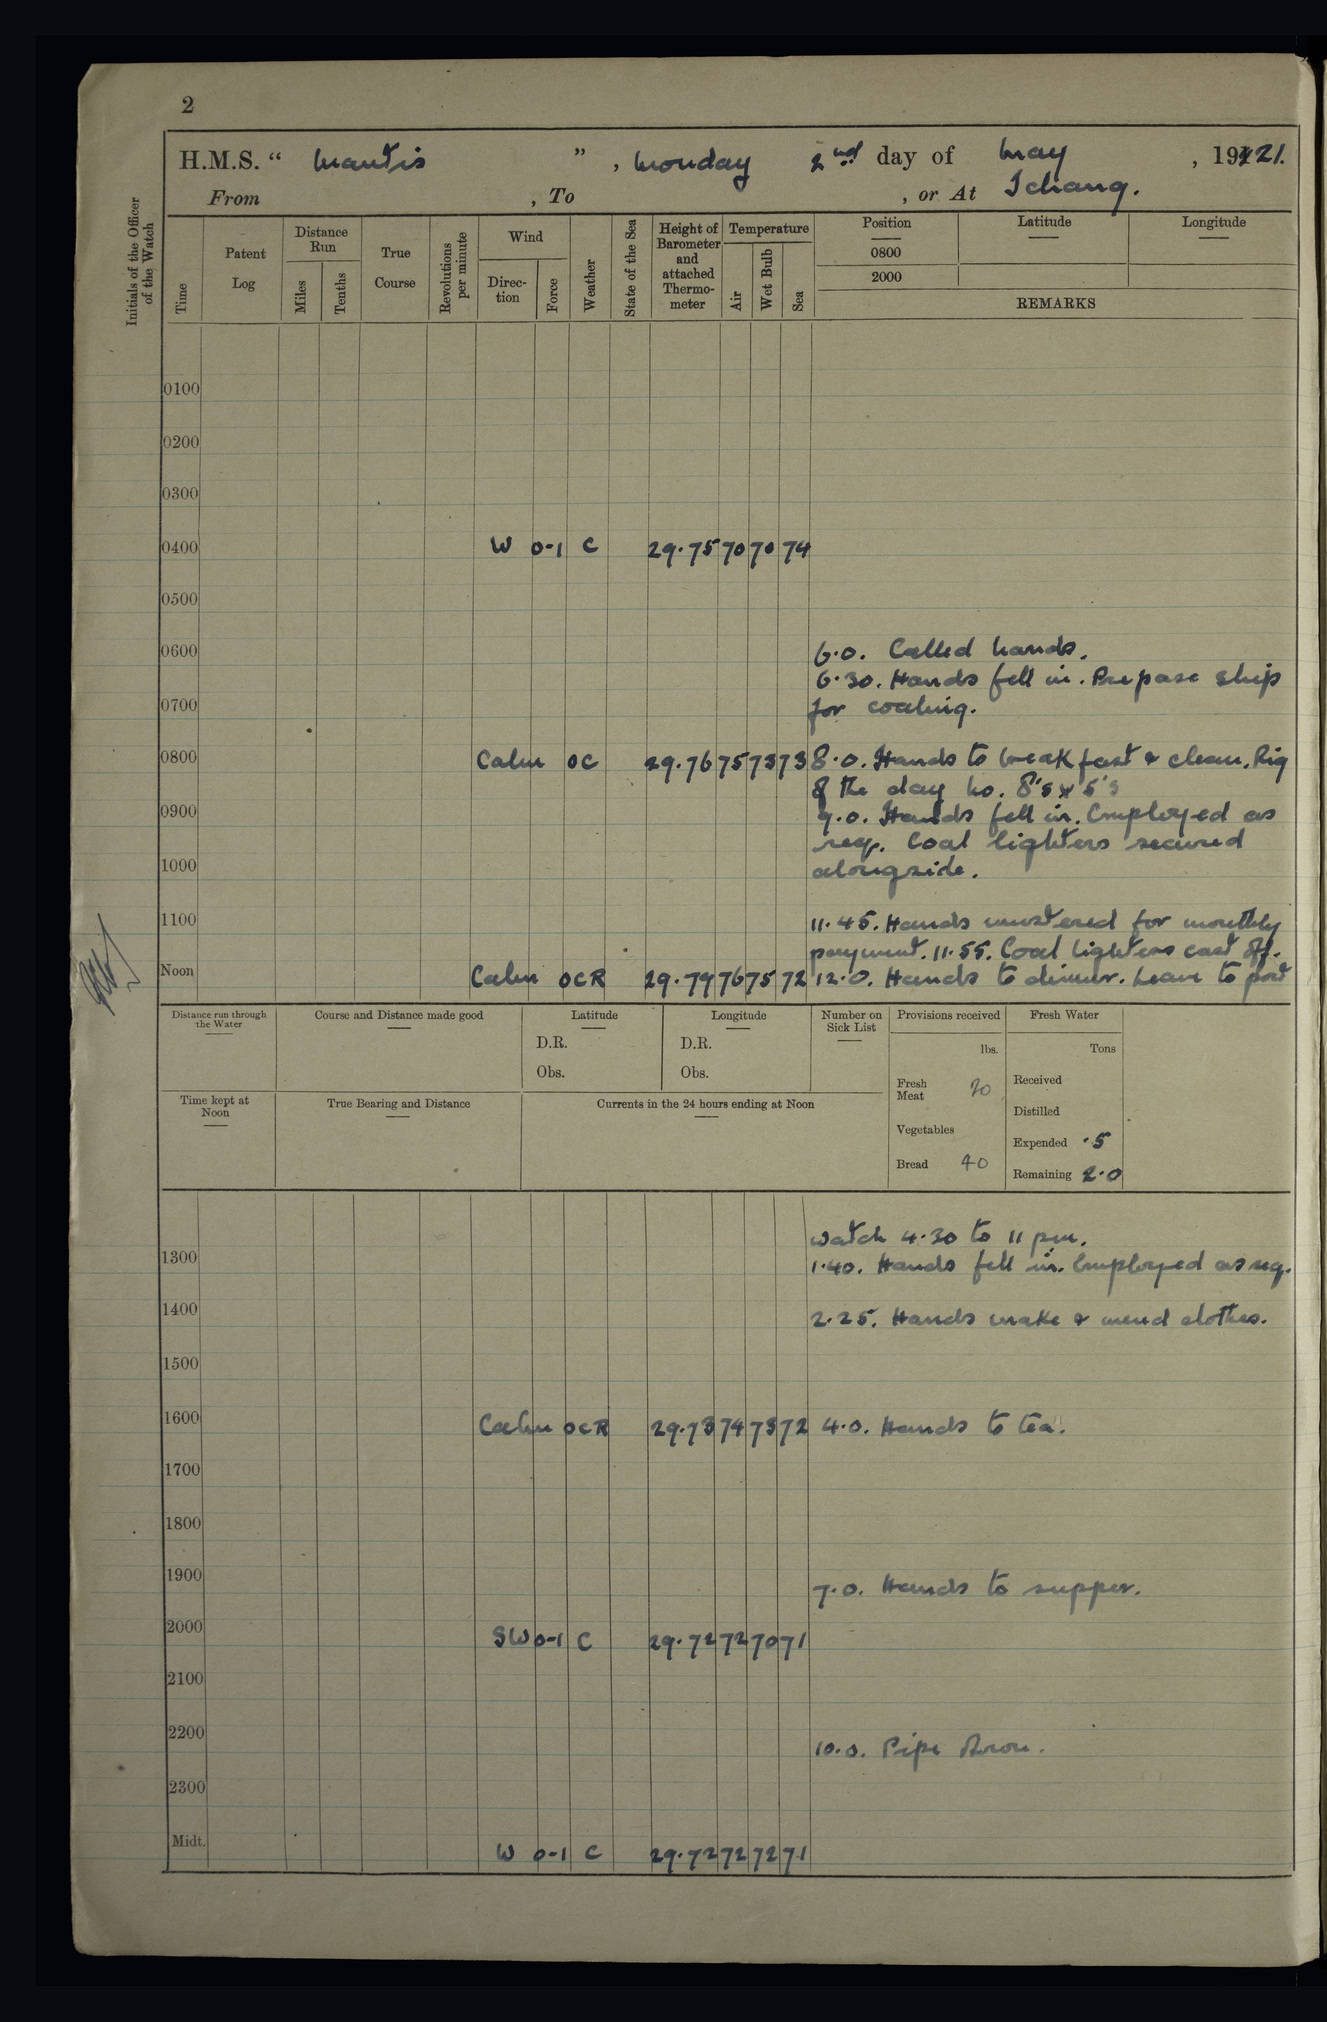 2
H.M.S. “ Mantis ” , Monday 2nd day of May , 1921.
From , To , or At Ichang.
Initials of the Officer of the Watch
Time
Patent Log
Distance Run
Miles
Tenths
True Course
Revolutions per minute
Wind
Direc-tion
Force
Weather
State of the Sea
Height of Barometer and attached Thermo-meter
Temperature
Air
Wet Bulb
Sea
Position Latitude Longitude
0800
2000
REMARKS
0100
0200
0300
0400 W 0-1 C 29.75 70 70 74
0500
0600 6.0. Called hands.
6.30. Hands fell in. Prepare ship
0700 for coaling.
0800 Calm OC 29.76 75 73 73 8.0. Hands to breakfast & clean. Rig
of the day No. 8's & 5's
0900 9.0. Hands fell in. Employed as
req. Coal lighters secured
1000 alongside.
1100 11.45. Hands mustered for monthly
payment. 11.55. Coal lighters cast off.
Noon Calm OCR 29.79 76 75 72 12.0. Hands to dinner. Leave to port
Distance run through the Water
Course and Distance made good
Latitude
D.R.
Obs.
Longitude
D.R.
Obs.
Number on Sick List
Provisions received
lbs.
Fresh Meat 20
Vegetables
Bread 40
Fresh Water
Tons
Received
Distilled
Expended .5
Remaining 2.0
Time kept at Noon
True Bearing and Distance
Currents in the 24 hours ending at Noon
watch 4.30 to 11 pm.
1300 1.40. Hands fell in. Employed as req.
1400 2.25. Hands make & mend clothes.
1500
1600 Calm OCR 29.73 74 73 72 4.0. Hands to tea.
1700
1800
1900 7.0. Hands to supper.
2000 SW 0-1 C 29.72 72 70 71
2100
2200 10.0. Pipe down.
2300
Midt. W 0-1 C 29.72 72 72 71